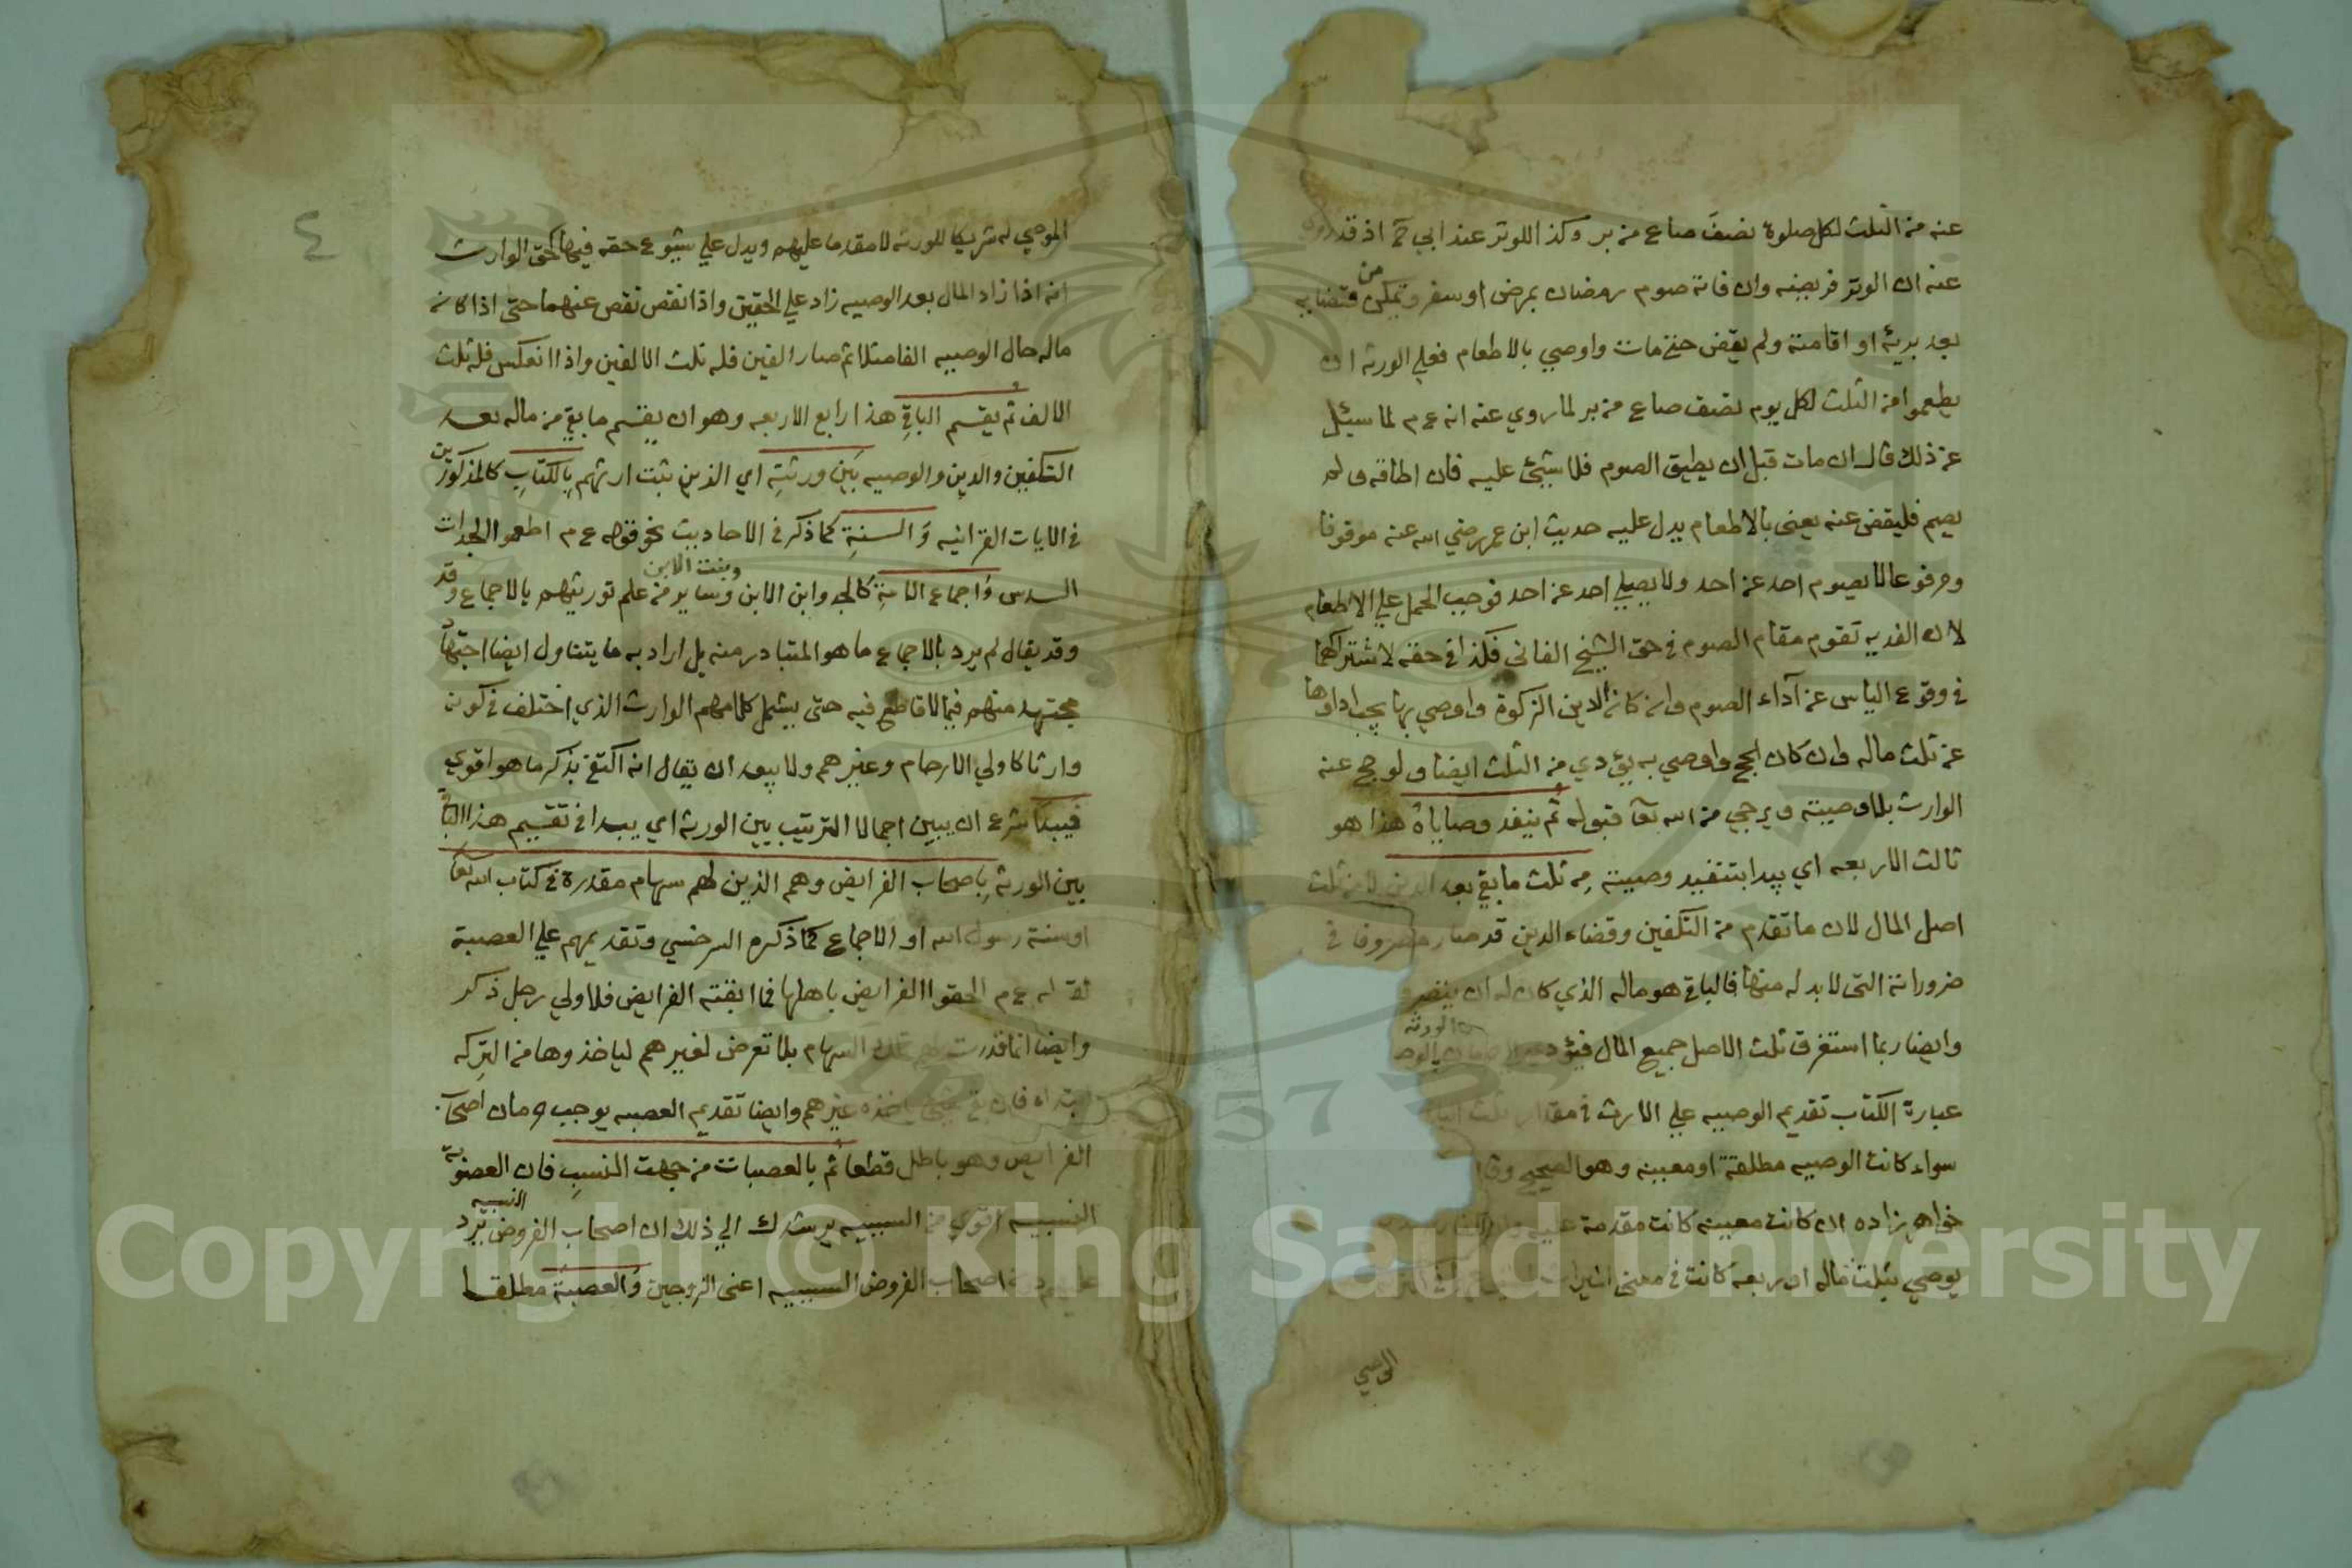 عنه من الثلث لكل صلوة نصف صاع من بر وكذا للوتر عند ابي ح اذ قد
عنه ان الوتر فريضه وان فاته صوم رمضان بمرض او سفر وتمكن من قضايه
بعد بريه او اقامته ولم يقض حتي مات واوصي بالاطعام فعلي الورثه ان
يطعموا من الثلث لكل يوم نصف صاع من بر لما روي عنه انه ع م لما سيئل
عن ذلك قال ان مات قبل ان يطيق الصوم فلا شيئ عليه فان اطاقه ولم
يصم فليقض عنه يعني بالاطعام يدل عليه حديث ابن عمر رضي الله عنه موقوفا
ومرفوعا لا يصوم احد عن احد ولا يصلي احد عن احد فوجب الحمل علي الاطعام
لان الفديه تقوم مقام الصوم في حق الشيخ الفاني فكذا في حقه لاشتراكهما
في وقوع الياس عن آداء الصوم وان كان الدين الزكوة واوصي بها يجب اداوها
عن ثلث ماله وان كان الحج واوصي به يؤدي من الثلث ايضا ولو حج عنه
الوارث بلا وصيته ويرجي من الله تعا قبوله ثم ينفد وصاياه هذا هو
ثالث الاربعه اي يبدا بتنفيد وصيته من ثلث ما بقي بعد الدين لا من ثلث
اصل المال لان ما تقدم من التكفين وقضاء الدين قد صار مصروفا في
ضروراته التي لا بد له منها فالباقي هو ماله الذي كان له ان
وايضا ربما استغرق ثلث الاصل جميع المال فيؤدي
الورثه
عبارة الكتاب تقديم الوصيه علي الارث في مقدار ثلث
سواء كانت الوصيه مطلقة او معينه وهو الصحيح
خواهر زاده ان كانت معينه كانت مقدمة عليه
يوصي بثلث ماله او ربعه كانت في معني
الموصي
٤
الموصي له شريكا للورثه لا مقدما عليهم ويدل علي شيوع حقه فيها كحق الوارث
انه اذا زاد المال بعد الوصيه زاد علي الحقين واذا نقص نقص عنهما حتي اذا كانه
ماله حال الوصيه الفا مثلا ثم صار الفين فله ثلث الالفين واذا انعكس فله ثلث
الالف ثم يقسم الباقي هذا رابع الاربعه وهو ان يقسم ما بقي من ماله بعد
التكفين والدين والوصيه بين ورثته اي الذين ثبت ارثهم بالكتاب كالمذكورين
في الايات القرانيه والسنة كما ذكر في الاحاديث نحو قوله ع م اطعموا الجدات
السدس واجماع الامة كالجد وابن الابن وبنت الابن وساير من علم توريثهم بالاجماع وقد
وقد يقال لم يرد بالاجماع ما هو المتبادر منه بل اراد به ما يتناول ايضا اجتهاد
مجتهد منهم فيما لا قاطع فيه حتي يشمل كلامهم الوارث الذي اختلف في كونه
وارثا كاولي الارحام وغيرهم ولا يبعد ان يقال انه اكتفي بذكر ما هو اقوي
فيبدا شرع ان يبين اجمالا الترتيب بين الورثه اي يبدا في تقسيم هذا الباقي
بين الورثه باصحاب الفرايض وهم الذين لهم سهام مقدرة في كتاب الله تعا
او سنة رسول الله او الاجماع كما ذكره السرخسي وتقديمهم علي العصبة
لقوله ع م الحقوا الفرايض باهلها فما ابقته الفرايض فلاولي رجل ذكر
وايضا انما قدرت لهم تلك السهام بلا تعرض لغيرهم لياخذوها من التركه
ابتداء فان بقي شيئ ياخذه غيرهم وايضا تقديم العصبه يوجب حرمان اصحاب
الفرايض وهو باطل قطعا ثم بالعصبات من جهت النسب فان العصوبة
النسبيه اقوي من السببيه يرشدك الي ذلك ان اصحاب الفروض النسبيه يرد
عليهم دون اصحاب الفروض السببيه اعني الزوجين والعصبة مطلقا
Copyright © King Saud University
1957